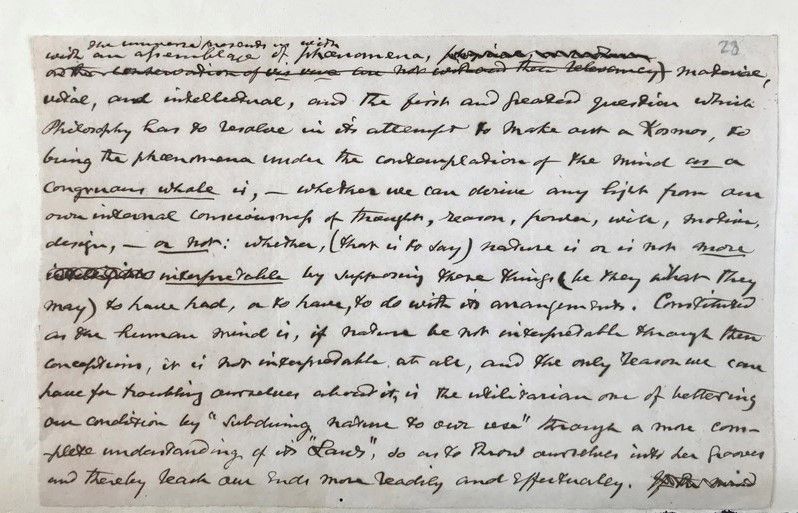 23
the universe presents us with
with an assemblage of phœnomena,
or the conservation of vis viva can not withstand their relevancy) material,
vital, and intellectual, and the first and greatest question which
Philosophy has to resolve in its attempt to make out a Kosmos, to
bring the phœnomena under the contemplation of the mind as a
congruous whole is, — whether we can derive any light from our
own internal consciousness of thought, reason, power, will, motive,
design, — or not: whether, (that is to say) nature is or is not more
interpretable by supposing these things (be they what they
may) to have had, or to have, to do with its arrangements. Constituted
as the human mind is, if nature be not interpretable through these
conceptions, it is not interpretable at all, and the only reason we can
have for troubling ourselves about it, is the utilitarian one of bettering
our condition by "subduing nature to our use" through a more com-
-plete understanding of its "Laws", so as to throw ourselves into her grooves
and thereby reach our ends more readily and effectually. If the mind